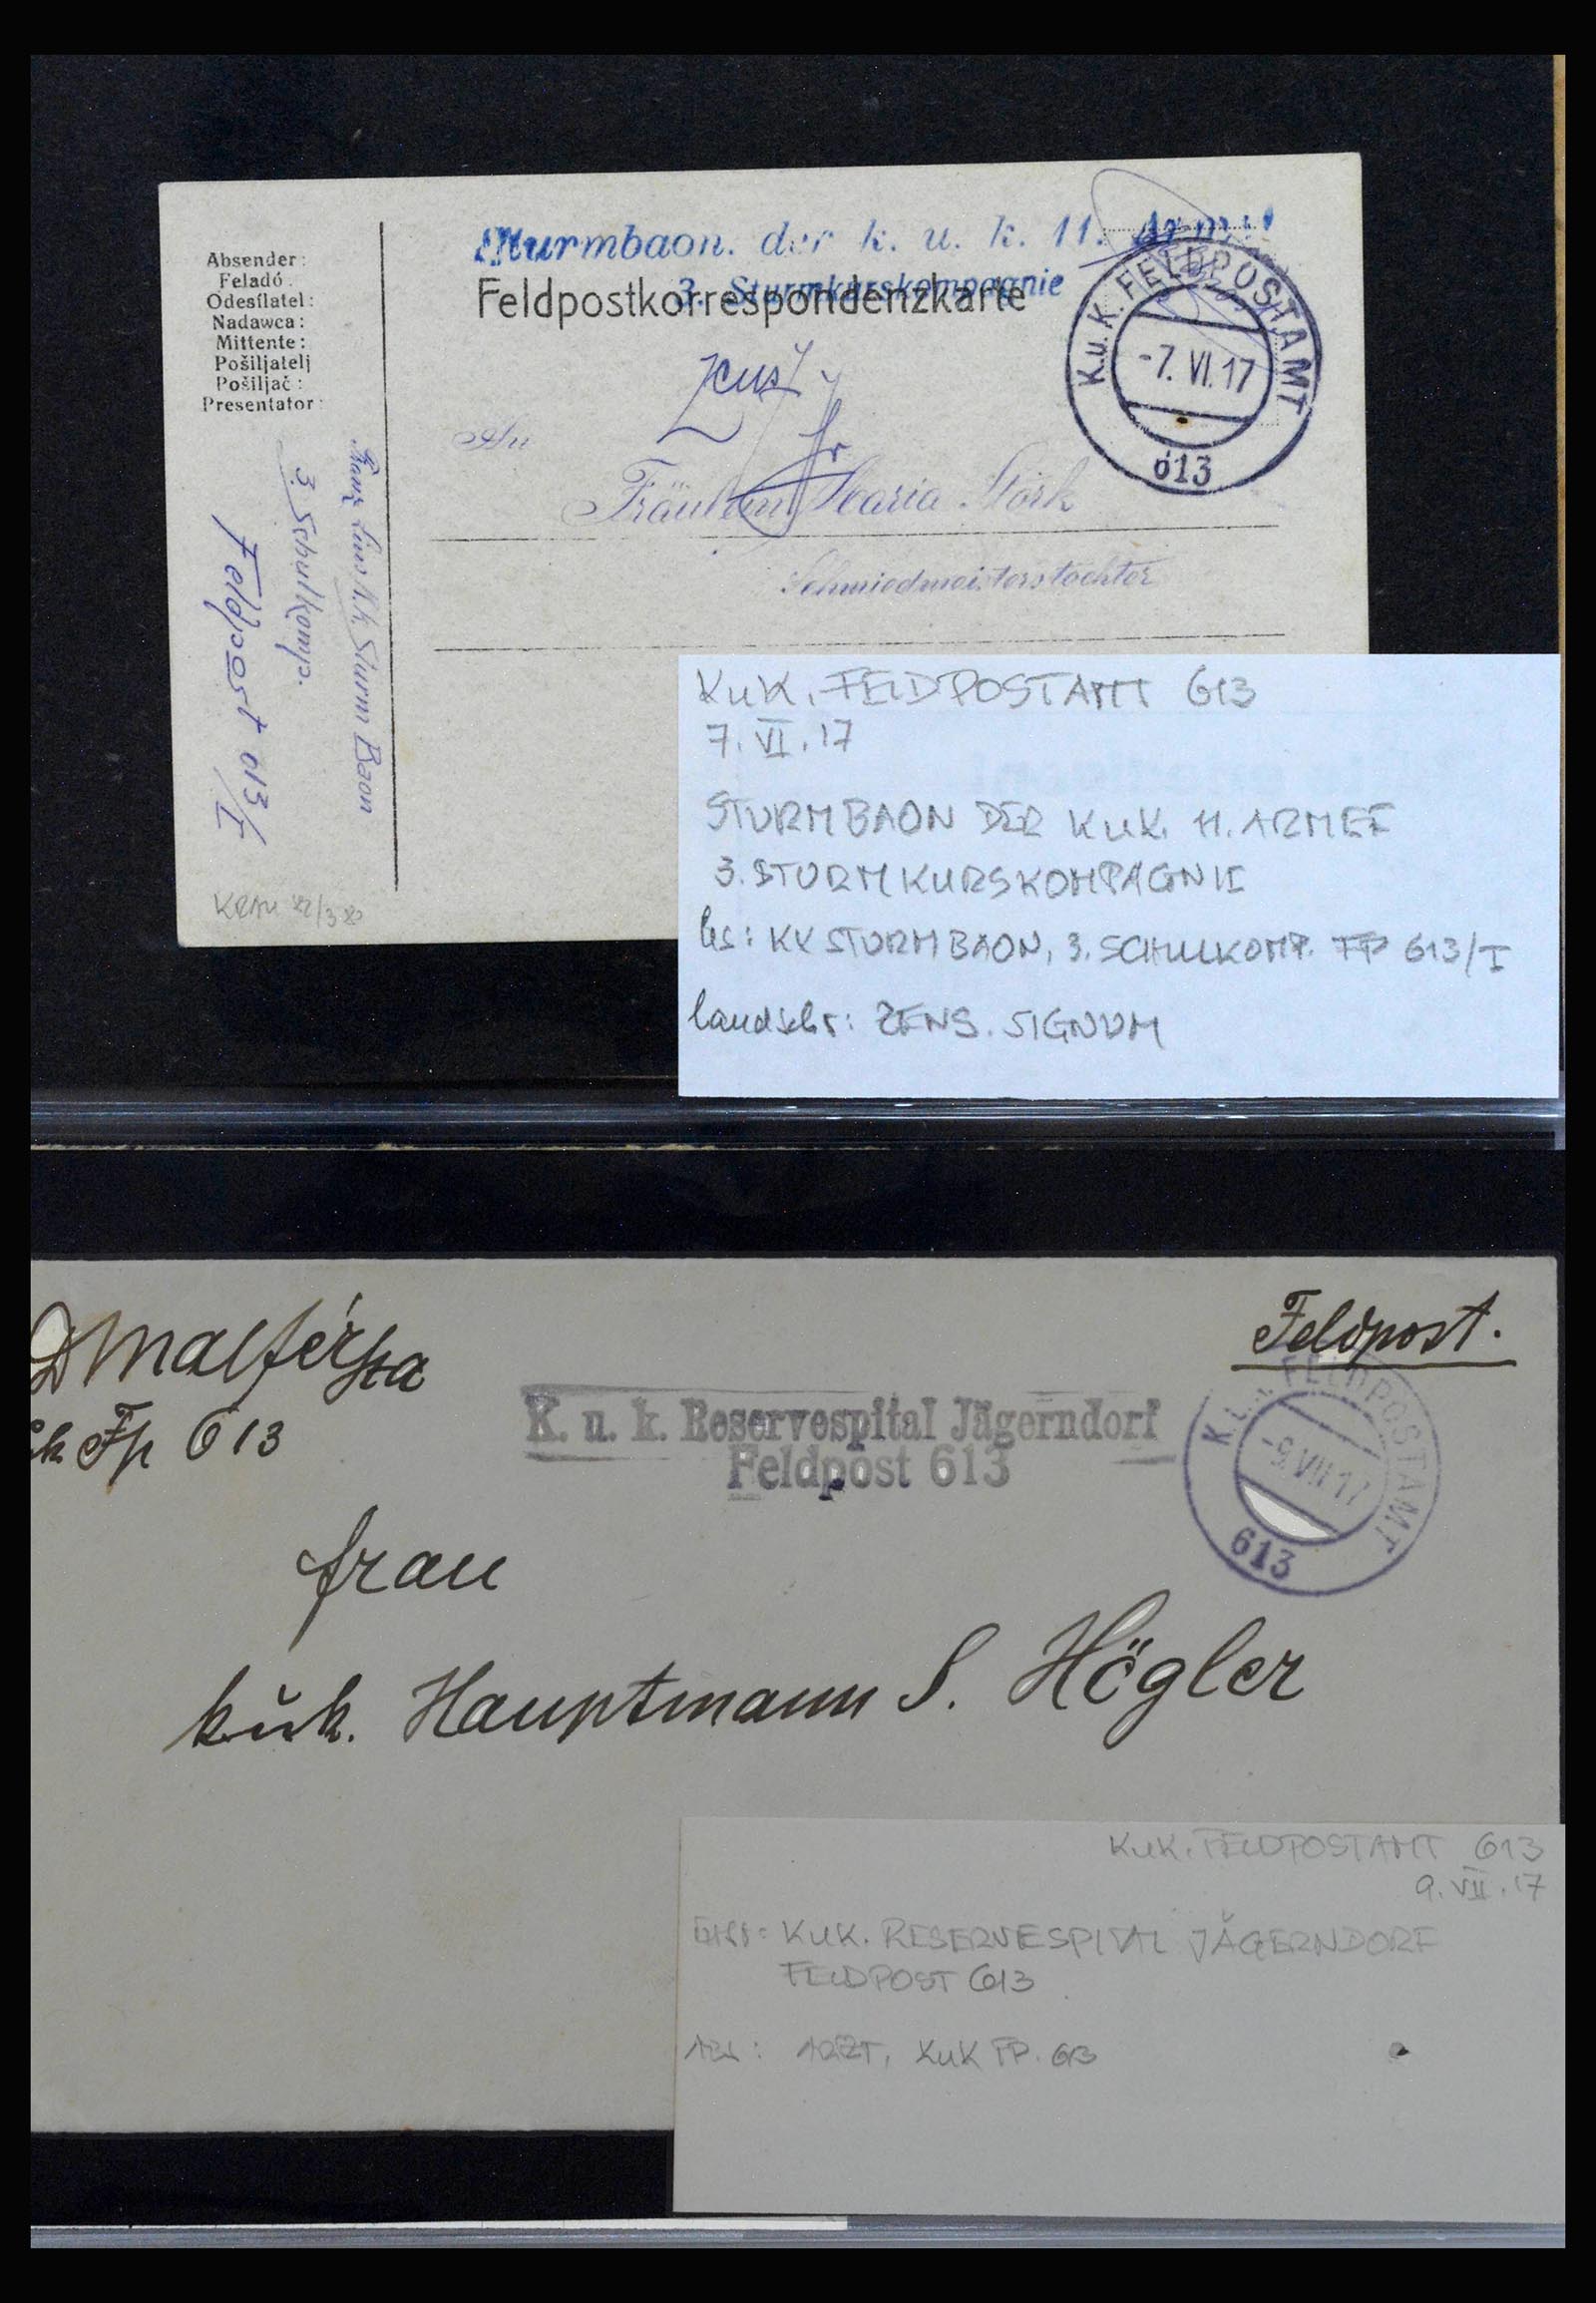 Sturmbaon. der k. u. k. 11. Armee
3. Sturmkurskompagnie
Feldpostkorrespondenzkarte
Absender:
Feladó:
Odesílatel:
Nadawca:
Mittente:
Pošiljatelj
Pošiljač:
Presentator:
K.u.K. FELDPOSTAMT
-7. VI. 17
613
An
Fräulein Maria Störk
Schmiedmeisterstochter
Franz k.k. Sturm Baon
3. Schulkomp.
Feldpost 613/I
KuK. FELDPOSTAMT 613
7. VI. 17
STURMBAON DER KuK. 11. ARMEE
3. STURMKURSKOMPAGNIE
hs: KK STURMBAON, 3. SCHULKOMP. FP 613/I
handschr: ZENS. SIGNUM
Feldpost.
Fp 613
K. u. k. Reservespital Jägerndorf
Feldpost 613
K.u.K. FELDPOSTAMT
-9. VII 17
613
Frau
kuk. Hauptmann S. Högler
KuK. FELDPOSTAMT 613
9. VII. 17
KuK. RESERVESPITAL JÄGERNDORF
FELDPOST 613
ABS: ARZT, KuK FP. 613